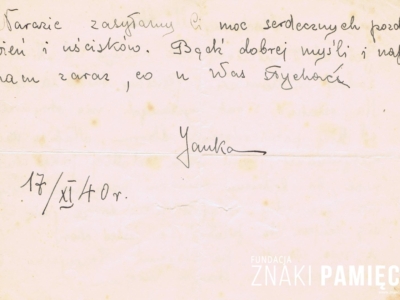 Narazie zasyłamy Ci moc serdecznych pozd
wień i uścisków. Bądź dobrej myśli i na
nam zaraz, co u Was słychać
Janka
17/XI 40 r.
FUNDACJA
ZNAKI PAMIĘC